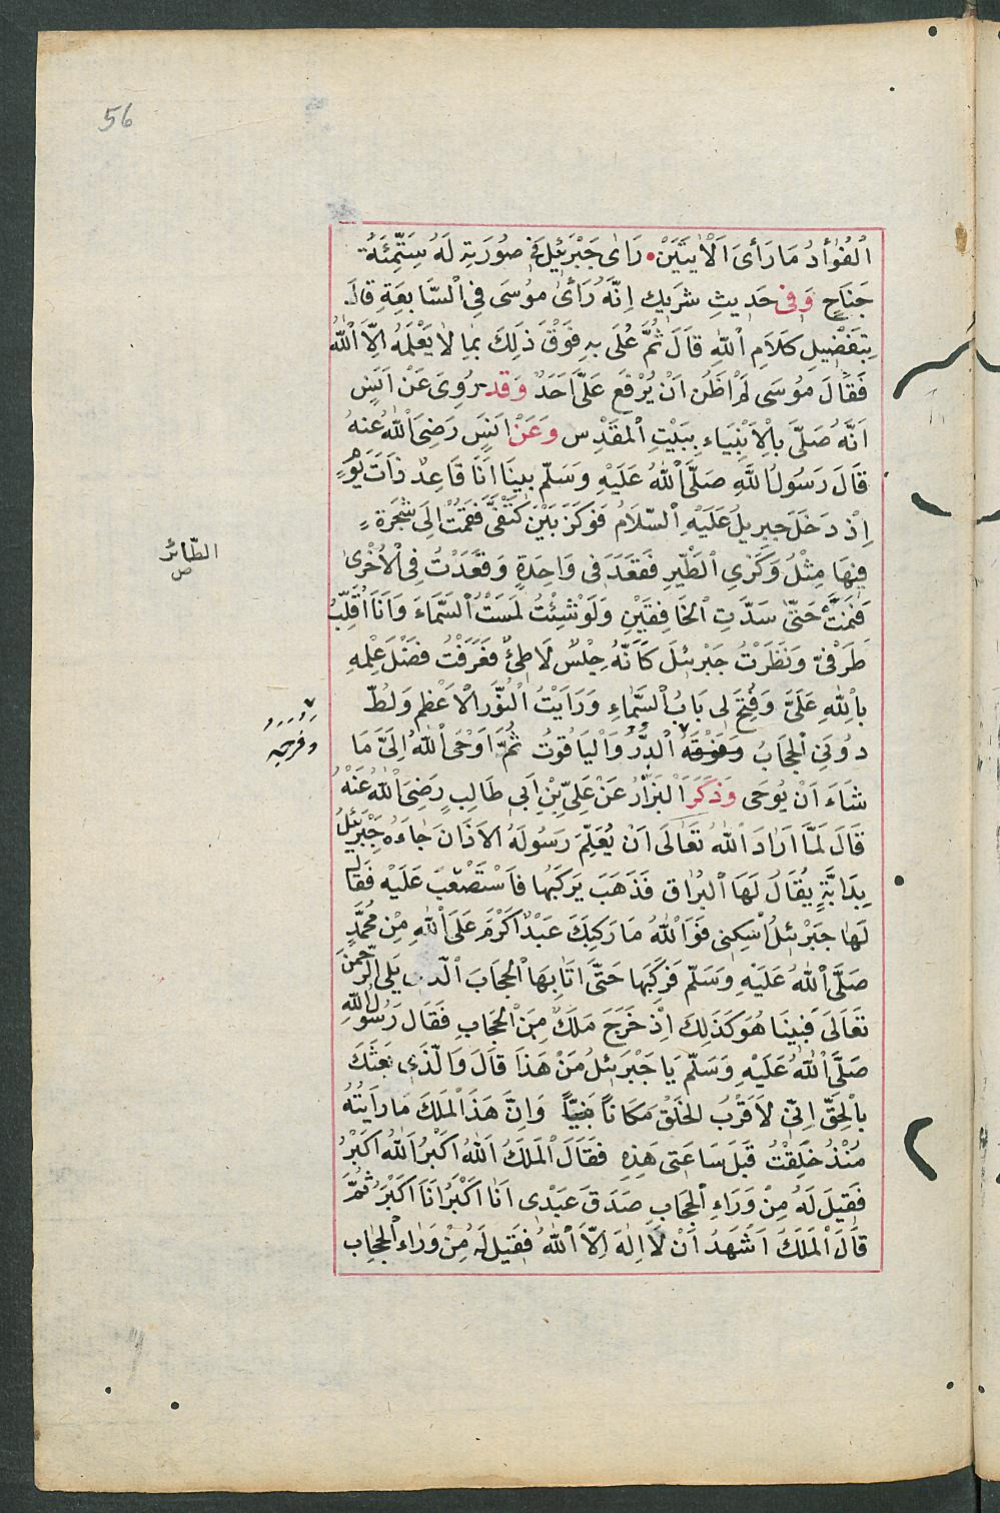 56
اَلْفُؤَادُ مَا رَأَىَ اَلْاٰيَتَيَنْ • رَاٰى جَبْرَئِيلَ فِى صُورَتِهِ لَهُ سِتُّمِئَةُ
جَنَاحٍ وَفِى حَدِيثِ شَرِيكِ اِنَّهُ رَأَىٰ مُوسَى فِى اْلسَّابِعَةِ قالَ
بِتَفَضْيلِ كَلاَمِ اْللّٰهِ قَالَ ثُمَّ عُلَى بِهِ فَوْقَ ذَلِكَ بِمَا لاٰ يَعْلَمُهُ اِلاَّ اْللّٰهُ
فَقَالَ مُوسَى لَمْ اَظَنَّ اَنْ يُرْفَعَ عَلَىَّ اَحَدٌ وَقَد رُوِىَ عَنْ اَنَسٍ
اَنَّهُ صَلَّى بِالْاَنْبِيَاءِ بِبَيْتِ اْلمَقَدْسِ وَعَنْ اَنَسٍ رَضِىَ اْللّٰهُ عَنْهُ
قَالَ رَسُولُ اللَّهِ صَلَّى اْللّٰهُ عَلَيْهِ وَسَلّمَ بينَا اَنَا قَاعِدٌ ذَاتَ يَوْمٍ
اِذْ دَخَلَ جِبرِيلُ عَلَيْهِ اْلسّلاَمُ فَوَكَزَ بَيْنَ كَتَفَىَّ فَقمَتُ اِلَى شَجَرَةٍ
فِيْهَا مِثْلُ وَكْرَىِ اْلطَّيْرِ فَقَعَدَ فى وَاحِدَةٍ وَقَعَدْتُ فِى اْلاُخْرىٰ
الطّائر
ص
فَنَمَتْ حَتّى سَدَّتِ اْلخَافِقَيْنِ وَلَوْ شِئْتُ لمَسَتْ اْلسَّمَاءَ وَاَنَا اُقَلِّبُ
طَرَفىِ وَنَظَرْتُ جَبْرَئِلَ كَاَنَّهُ حِلْسٌ لَاطِئٌ فَعَرَفْتُ فضَلَ عِلْمِهِ
بِاْللّٰهِ عَلَىَّ وَفُتِحَ لى بَابُ اْلسَّمَاءِ وَرَاَيْتُ اْلنُّورَ اْلاَعْظَم وَلُطَّ
دُونِىَ اْلحِجَابُ وَفَوْقَهُ اْلدُّرُّ وَاْليَاقُوتُ ثُمَّ اَوْحَى اْللّٰهُ اِلَىَّ مَا
وَفُرَجُه
شَاءَ اَنْ يُوحَى وَذَكَرَ اْلبَزَّارُ عَنْ عَلِىّ بْنِ اَبى طَالِبٍ رَضِىَ اْللّٰهُ عَنْهُ
قَالَ لَمَّا اَرَادَ اْللّٰهُ تَعَالَى اَنْ يُعَلِّمَ رَسُولَهُ اْلاَذَانَ جَاءَهُ جَبْرَئِلُ
بِدَابَّةٍ يُقَالُ لَهَا اْلبُرَاق فَذَهَبَ يَرَكَبُهَا فاَسْتَصْعَبَ عَلَيْهِ فَقَالَ
لَهَا جَبْرَئِلُ اْسْكِنى فَوَاْللّٰهُ مَا رَكِبَكَ عَبْدٌ اَكْرَمَ عَلَى اْللّٰهِ مِنْ مُحَمَّدٍ
صَلَّى اْللّٰهُ عَلَيْهِ وَسَلّم فَرَكَبَهَا حَتَّى اَتَا بِهَا اْلحِجَابَ الّذى يَلِى الرَّحْمنَ
تَعَالَى فَبينَا هُوَ كَذَلِكَ اِذْ خَرَجَ مَلَكٌ مِنَ اْلحِجَابِ فَقَال رَسُولُ اللّٰهِ
صَلَّى اْللّٰهُ عَلَيْهِ وَسَلّم يَا جَبْرَئِلُ مَنْ هَذَا قالَ وَالَّذى بَعَثَكَ
بِالْحِقِّ اِنّى لاَقَرْبُ الخَلْقِ مَكَاناً وَاِنَّ هَذَ اْلمَلَكَ مَا رَاَيتُهُ
مُنْذُ خُلِقْتُ قَبلَ سَاعَتى هَذِهِ فقَالَ اْلمَلَكُ اَللّٰهُ اَكْبرُ اَللّٰهُ اَكَبَرُ
فَقِيلَ لَهُ مِنْ وَرَاءِ اْلحِجَابِ صَدَقَ عَبْدى اَنَا اَكْبَرُ اَنَا اَكَبَرُ ثُمَّ
قَالَ اْلمَلَكُ اَشَهَدُ اَنْ لَا اِلٰهَ اِلاَّ اْللّٰهُ فقِيلَ لَهُ مِنْ وَرَاءِ اْلحِجَابِ